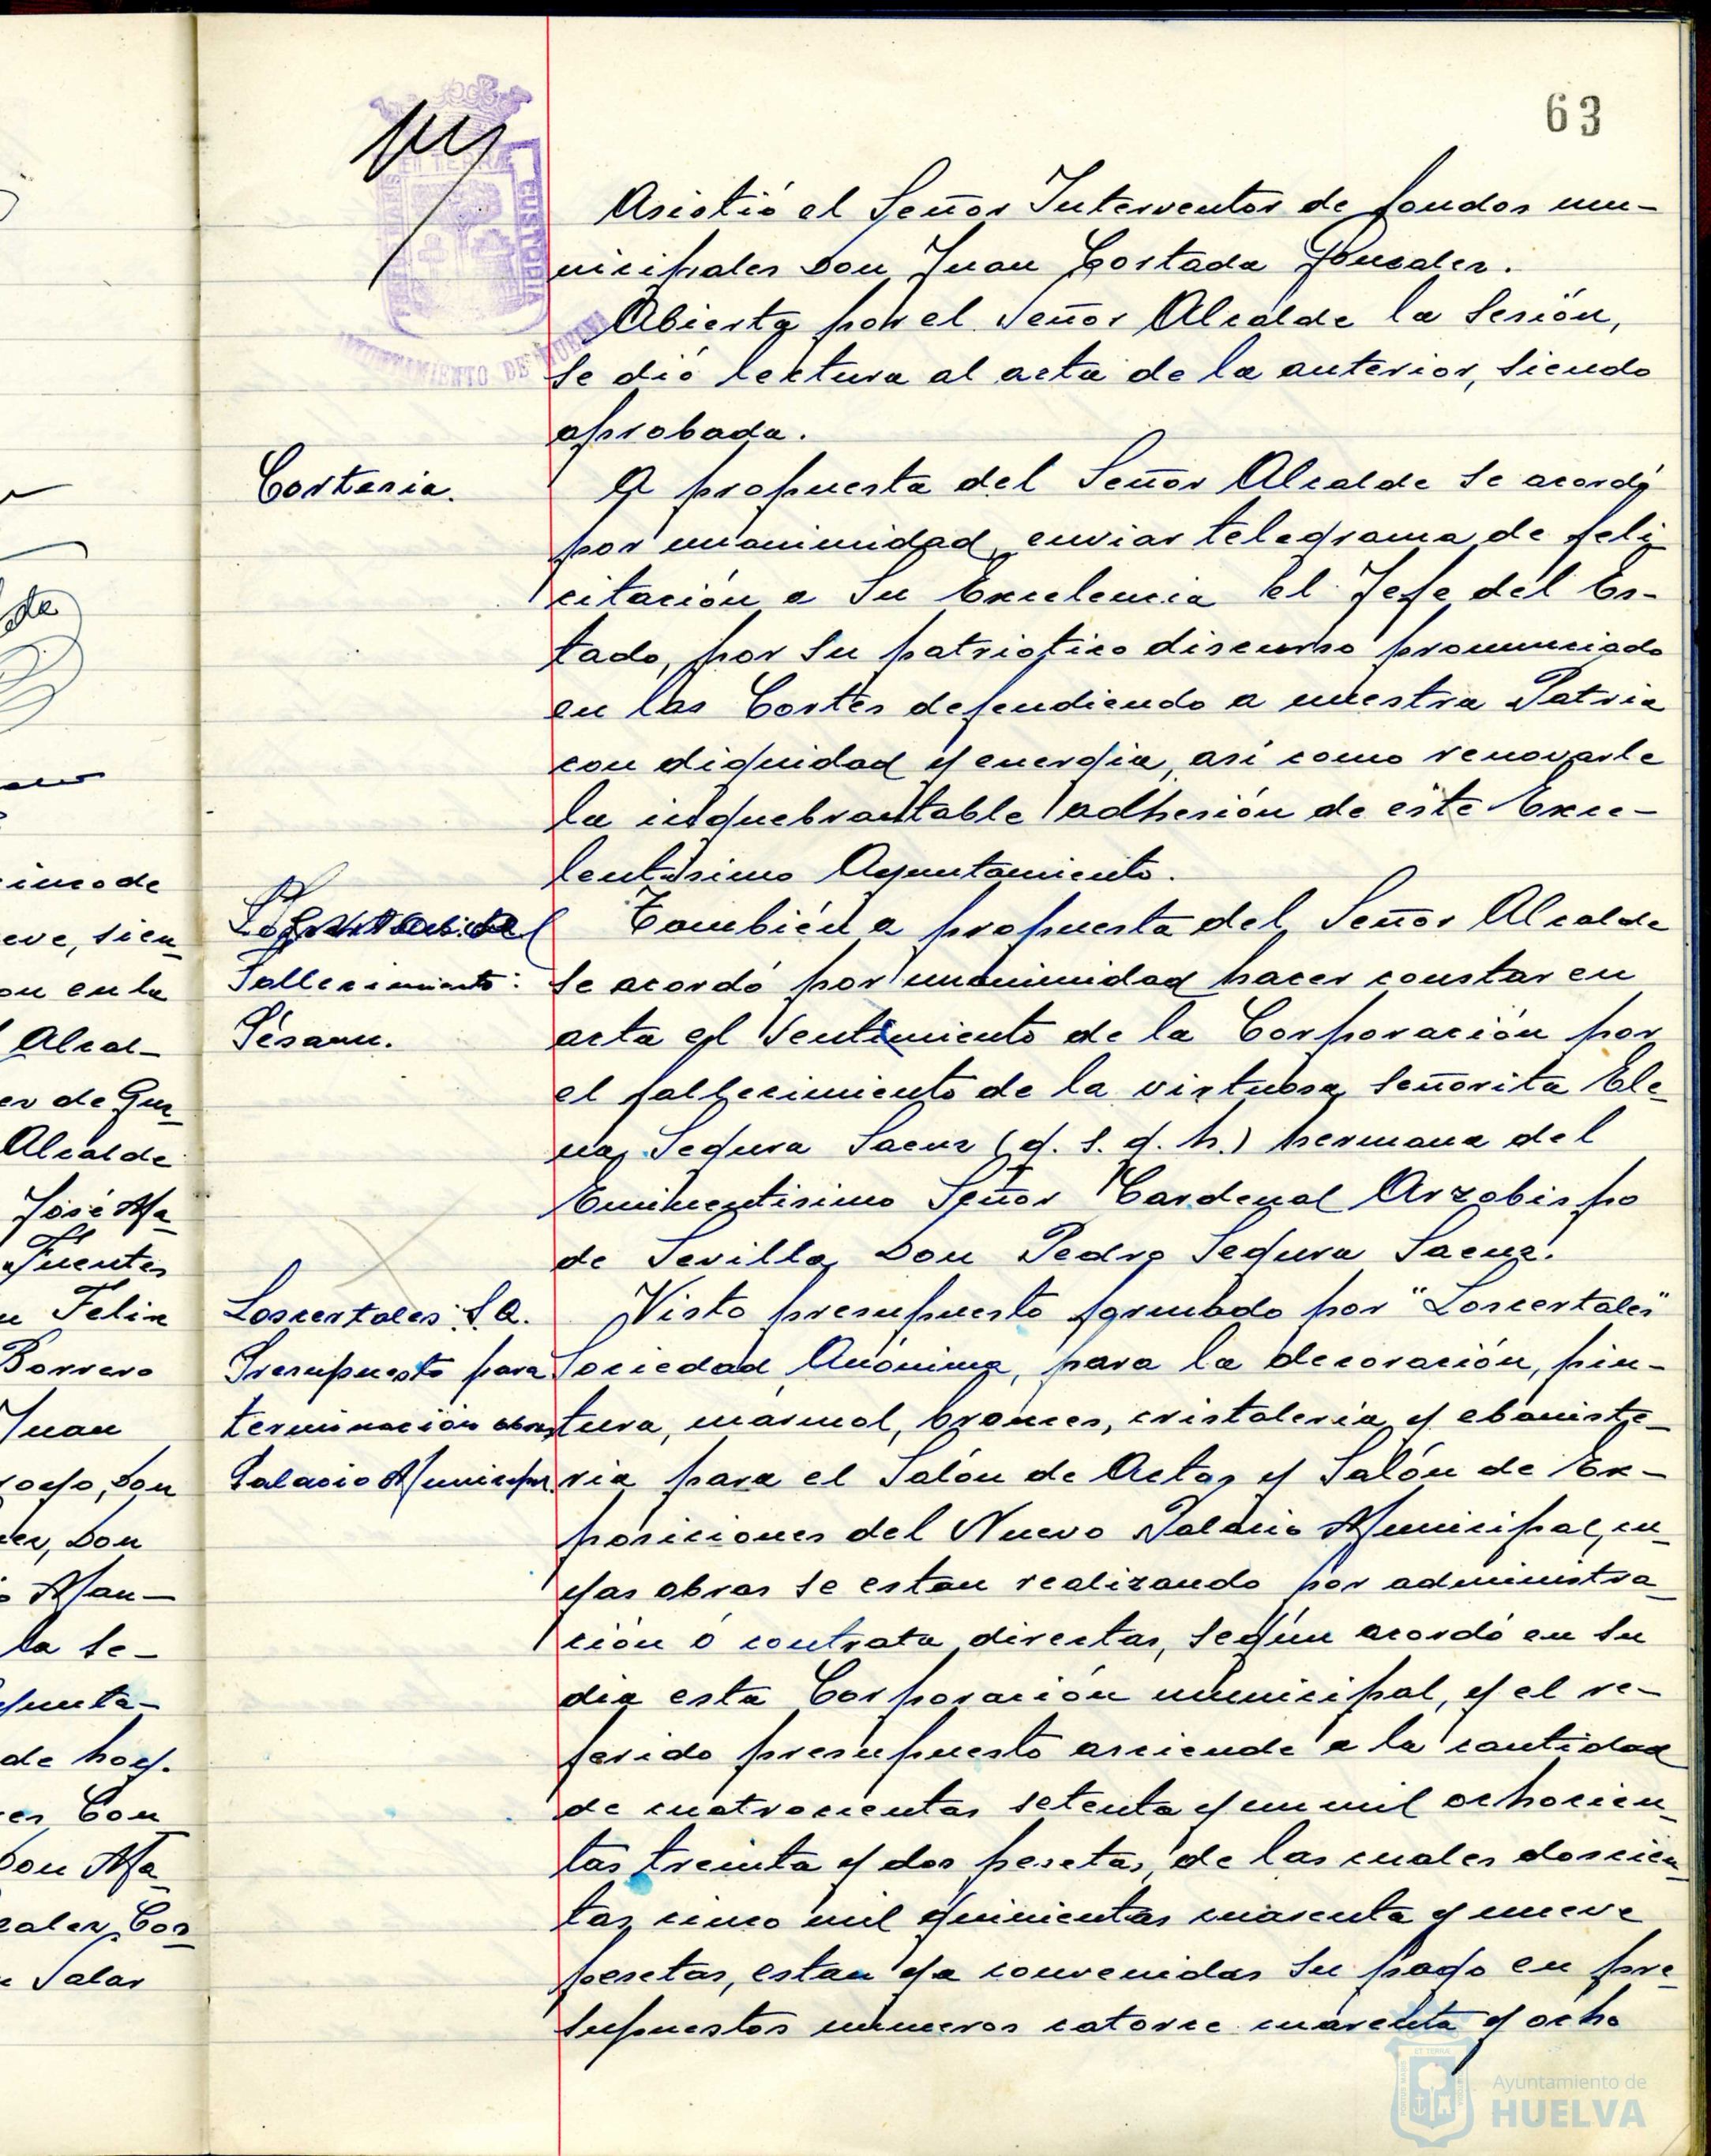 63
Asistió el Señor Interventor de fondos mu-
nicipales Don Juan Cortada Gonzalez.
Abierta por el Señor Alcalde la Sesión,
se dió lectura al acta de la anterior, siendo
aprobada.
Cortesia.
A propuesta del Señor Alcalde se acordó
por unanimidad enviar telegrama de feli-
citación a Su Excelencia el Jefe del Es-
tado, por su patriotico discurso pronunciado
en las Cortes defendiendo a nuestra Patria
con dignidad y energia, asi como renovarle
la inquebrantable adhesión de este Exce-
lentisimo Ayuntamiento.
Fallecimiento:
Pésame.
Tambien a propuesta del Señor Alcalde
se acordó por unanimidad hacer constar en
acta el sentimiento de la Corporación por
el fallecimiento de la virtuosa Señorita Ele-
na Segura Saenz (q. s. g. h.) hermana del
Eminentisimo Señor Cardenal Arzobispo
de Sevilla Don Pedro Segura Saenz.
Loscertales S.A.
Presupuesto para
terminación obras
Palacio Municipal
Visto presupuesto formulado por "Loscertales"
Sociedad Anónima, para la decoración, pin-
tura, marmol, bronces, cristaleria y ebaniste-
ria para el Salón de Actos y Salón de Ex-
posiciones del Nuevo Palacio Municipal, cu-
yas obras se estan realizando por administra-
ción ó contrata directas, según acordó en su
dia esta Corporación municipal, y el re-
ferido presupuesto asciende a la cantidad
de cuatrocientas setenta y un mil ochocien-
tas treinta y dos pesetas, de las cuales doscien-
tas cinco mil quinientas cuarenta y nueve
pesetas, estan ya convenidas su pago en pre-
supuestos numeros catorce cuarenta y ocho
cinco de
eve, sien-
on en la
Alcal-
er de Guz-
Alcalde
José Ma-
Fuentes
n Felix
Borrero
Juan
royo, Don
ez, Don
o Man-
la se-
yunta-
de hoy.
es Con
Don Ma-
zalez Cor-
Salas
ET TERRAE
CUSTODIA
AYUNTAMIENTO DE HUELVA
Ayuntamiento de
HUELVA